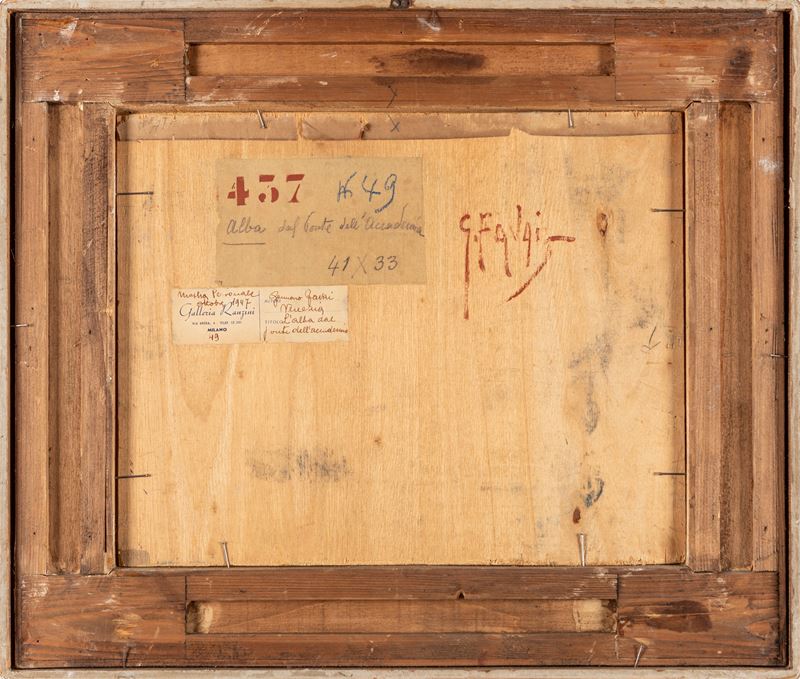 437 N 49
Alba dal Ponte dell'Accademia
41 X 33
G. Favai
Mostra Personale
ottobre 1947
Galleria Ranzini
VIA BRERA, 
MILANO
49
Gennaro Favai
Venezia
TITOLO L'alba dal
ponte dell'accademia